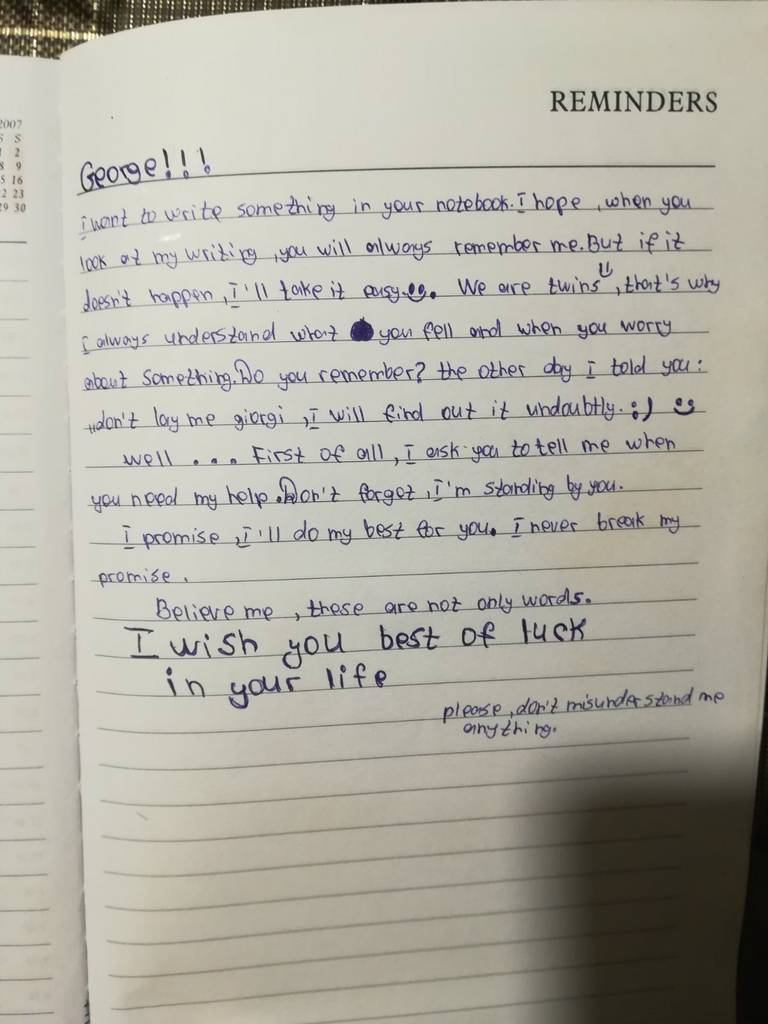 2007
S S
1 2
8 9
5 16
2 23
29 30
REMINDERS
George!!!
i want to write something in your notebook. I hope, when you
look at my writing, you will always remember me. But if it
doesn't happen, I'll take it easy. We are twins, that's why
I always understand what you fell and when you worry
about something. Do you remember? the other day I told you:
„don't lay me giorgi, I will find out it undoubtly. :)
well ... First of all, I ask you to tell me when
you need my help. Don't forget, I'm standing by you.
I promise, I'll do my best for you. I never break my
promise.
Believe me, these are not only words.
I wish you best of luck
in your life
please, don't misunderstand me
anything.